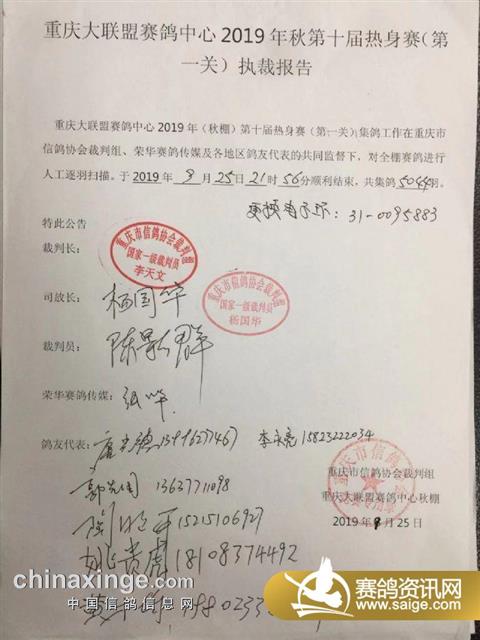 重庆大联盟赛鸽中心 2019 年秋第十届热身赛（第
一关）执裁报告
重庆大联盟赛鸽中心 2019 年（秋棚）第十届热身赛（第一关）集鸽工作在重庆市
信鸽协会裁判组、荣华赛鸽传媒及各地区鸽友代表的共同监督下，对全棚赛鸽进行
人工逐羽扫描。于 2019 年 9 月 25 日 21 时 56 分顺利结束，共集鸽 5044 羽。
31-0095883
特此公告
裁判长：
重庆市信鸽协会裁判盟
国家一级裁判员
李天文
司放长：
杨国华
重庆市信鸽协会裁判盟
国家一级裁判员
杨国华
裁判员：
荣华赛鸽传媒：
鸽友代表：
李永亮 15823222034
13637711098
15215106927
18108374492
重庆市信鸽协会裁判组
重庆大联盟赛鸽中心秋棚
2019 年 9 月 25 日
chinaxinge.com
中国信鸽信息网
赛鸽资讯网
www.saige.com